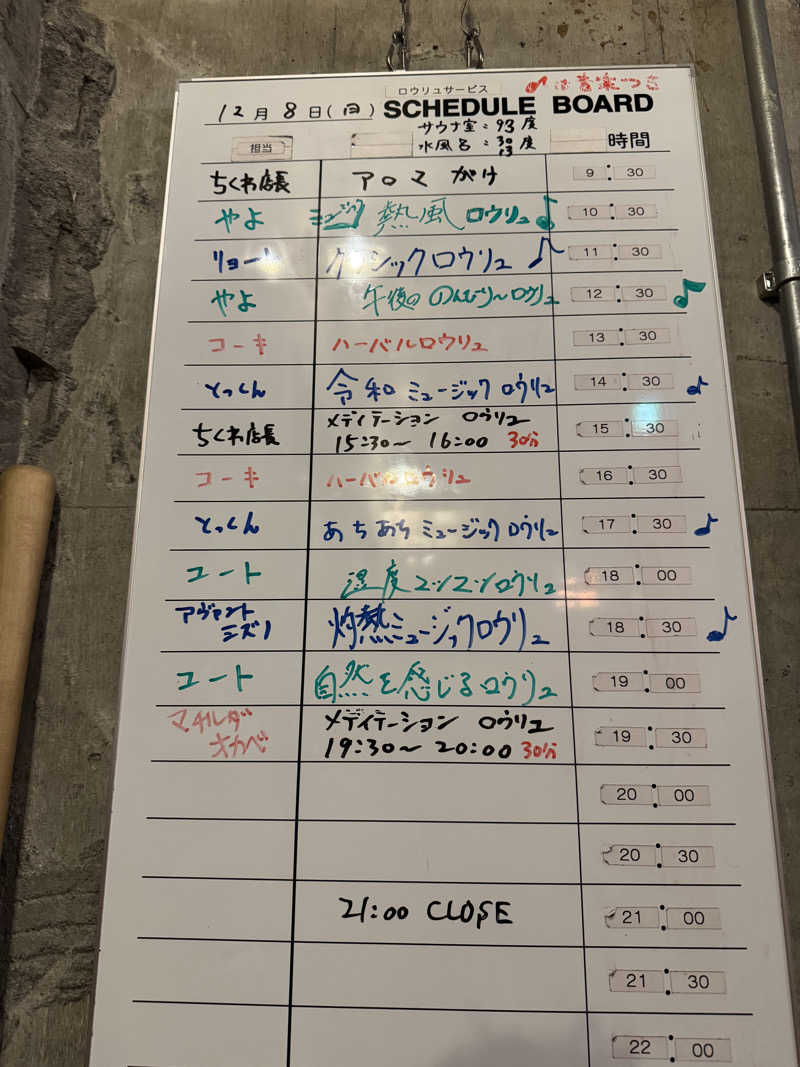 ロウリュサービス
♪は音楽つき
12月8日(日) SCHEDULE BOARD
サウナ室:93度
担当 水風呂:30 13度 時間
ちくわ店長 アロマがけ 9:30
やよ ミュージック熱風ロウリュ♪ 10:30
リョート クラシックロウリュ♪ 11:30
やよ 午後ののんびり〜ロウリュ 12:30 ♪
コーキ ハーバルロウリュ 13:30
とっくん 令和ミュージックロウリュ 14:30 ♪
ちくわ店長 メディテーション ロウリュ 15:30
15:30〜16:00 30分
コーキ ハーバルロウリュ 16:30
とっくん あちあちミュージックロウリュ 17:30 ♪
ユート 湿度マシマシロウリュ 18:00
アヴァント
ミズノ 灼熱ミュージックロウリュ 18:30 ♪
ユート 自然を感じるロウリュ 19:00
マチルダ
オカベ メディテーション ロウリュ 19:30
19:30〜20:00 30分
20:00
20:30
21:00 CLOSE 21:00
21:30
22:00